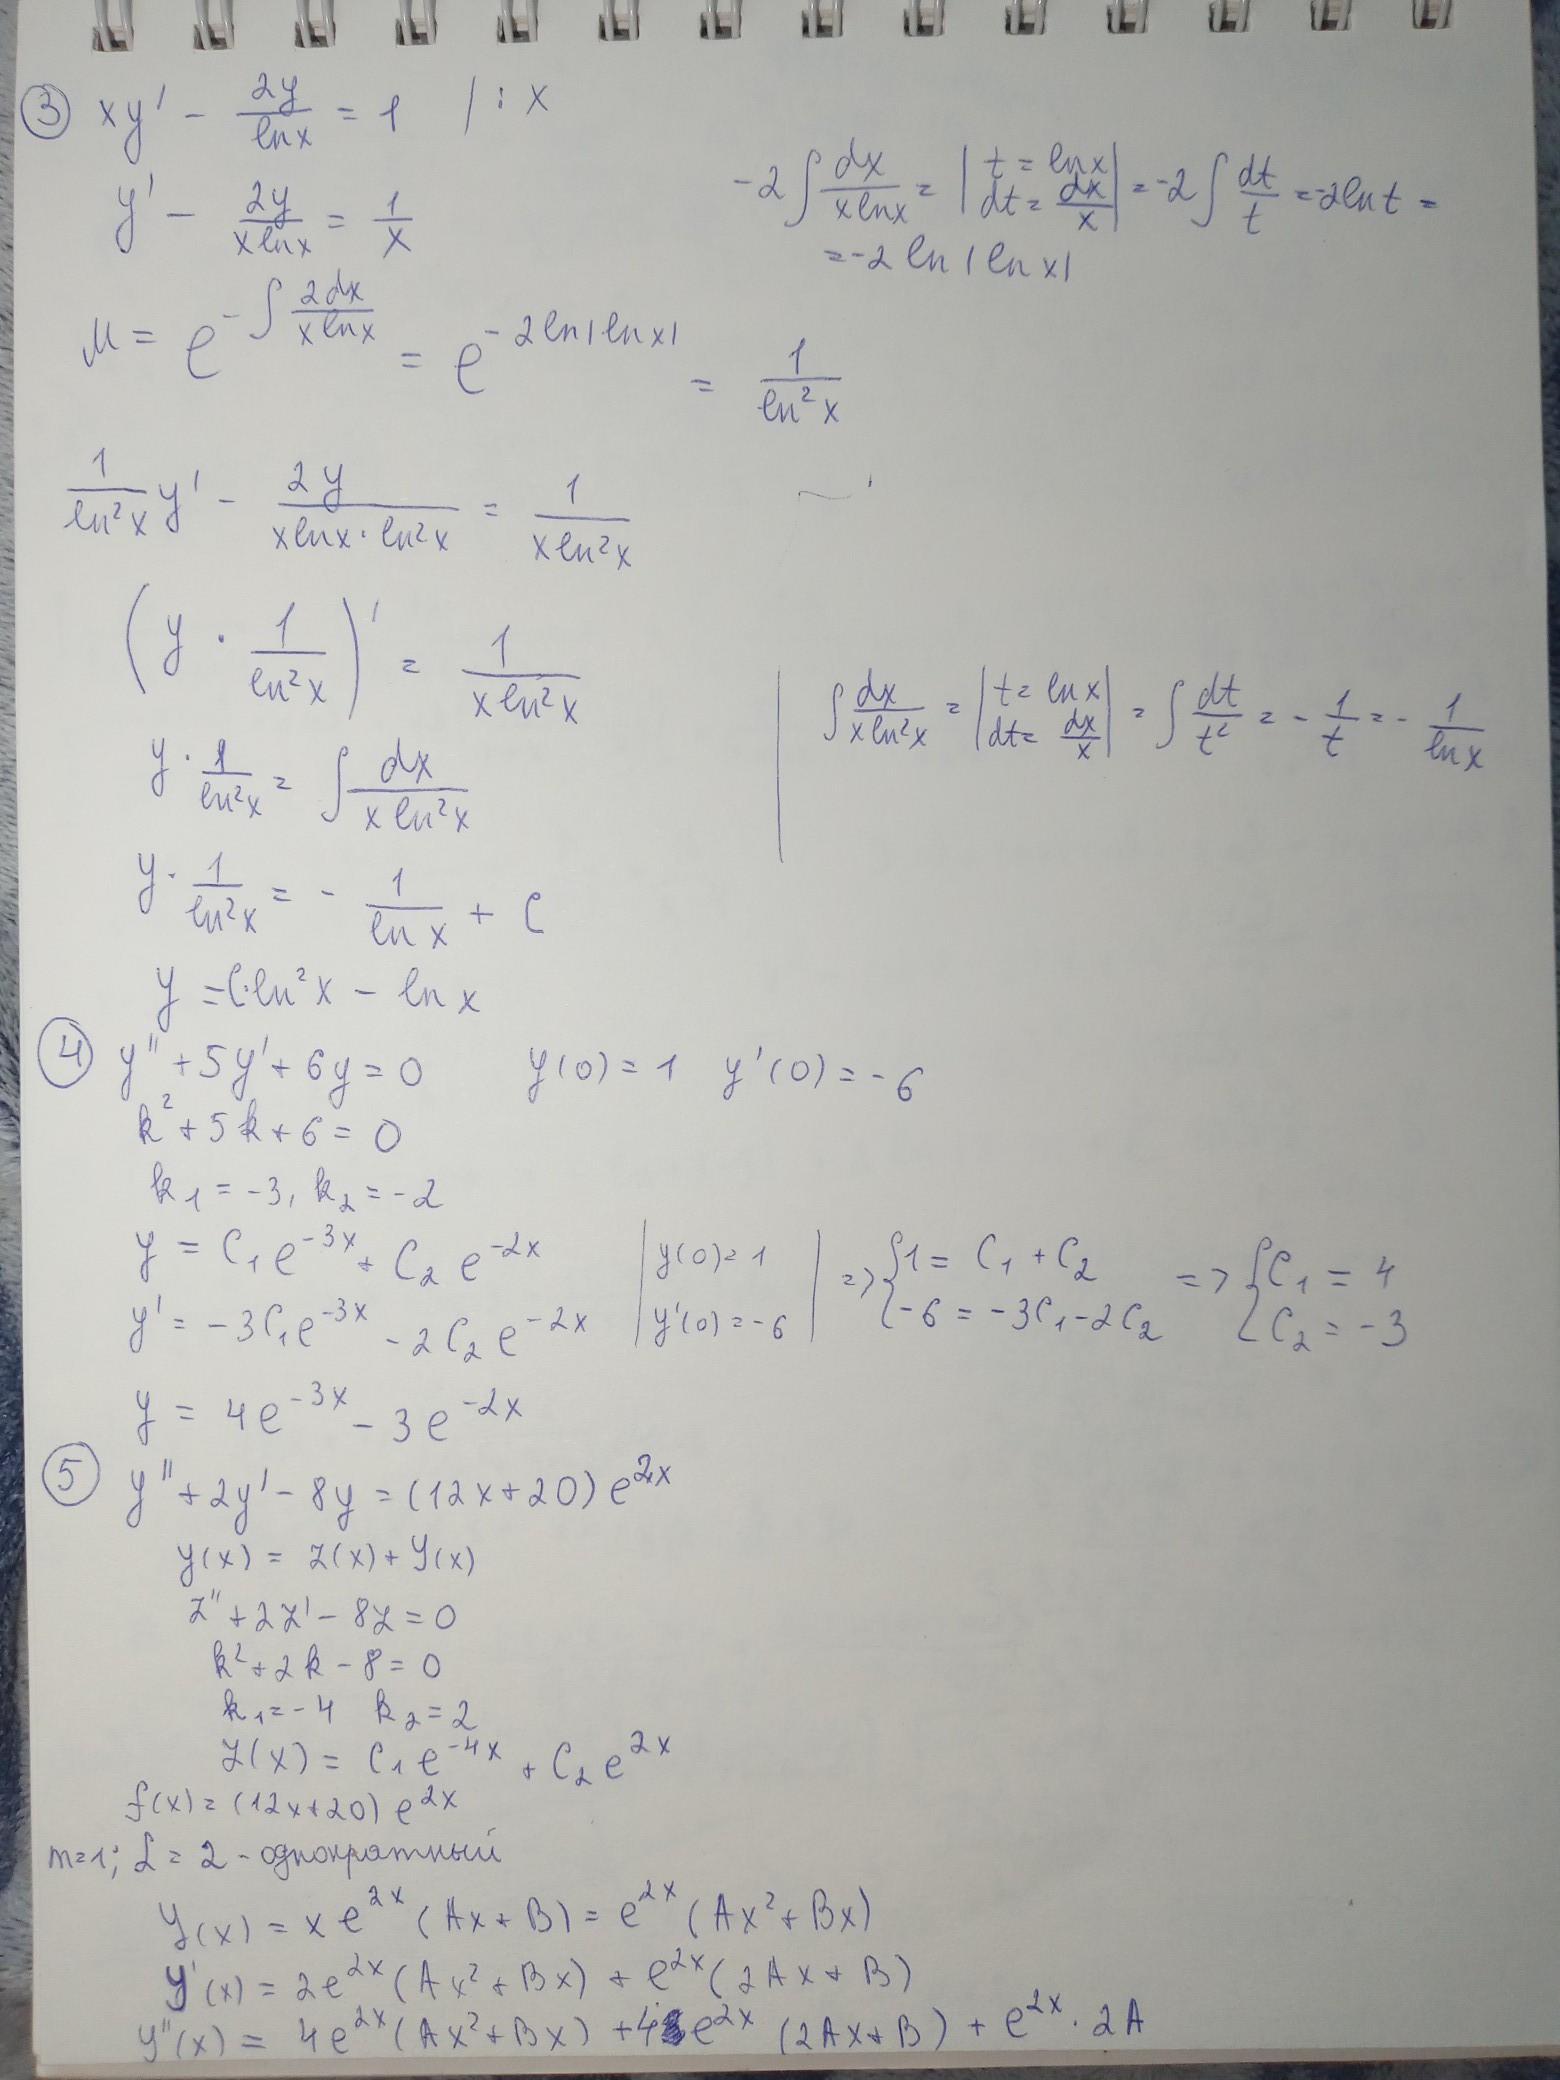 ③ xy' - 2y/ln x = 1 | : x
y' - 2y/(x ln x) = 1/x
-2∫dx/(x ln x) = |t = ln x, dt = dx/x| = -2∫dt/t = -2 ln t =
= -2 ln|ln x|
M = e^(-∫2dx/(x ln x)) = e^(-2 ln|ln x|) = 1/ln²x
1/ln²x y' - 2y/(x ln x · ln²x) = 1/(x ln²x)
(y · 1/ln²x)' = 1/(x ln²x)
∫dx/(x ln²x) = |t = ln x, dt = dx/x| = ∫dt/t² = -1/t = -1/ln x
y · 1/ln²x = ∫dx/(x ln²x)
y · 1/ln²x = -1/ln x + C
y = C·ln²x - ln x
④ y'' + 5y' + 6y = 0 y(0) = 1 y'(0) = -6
k² + 5k + 6 = 0
k₁ = -3, k₂ = -2
y = C₁e^(-3x) + C₂e^(-2x) | y(0) = 1 | => { 1 = C₁ + C₂ => { C₁ = 4
y' = -3C₁e^(-3x) - 2C₂e^(-2x) | y'(0) = -6 | { -6 = -3C₁ - 2C₂ { C₂ = -3
y = 4e^(-3x) - 3e^(-2x)
⑤ y'' + 2y' - 8y = (12x + 20)e^(2x)
y(x) = z(x) + Y(x)
z'' + 2z' - 8z = 0
k² + 2k - 8 = 0
k₁ = -4 k₂ = 2
z(x) = C₁e^(-4x) + C₂e^(2x)
f(x) = (12x + 20)e^(2x)
m = 1; α = 2 - однократный
Y(x) = xe^(2x)(Ax + B) = e^(2x)(Ax² + Bx)
Y'(x) = 2e^(2x)(Ax² + Bx) + e^(2x)(2Ax + B)
Y''(x) = 4e^(2x)(Ax² + Bx) + 4e^(2x)(2Ax + B) + e^(2x) · 2A